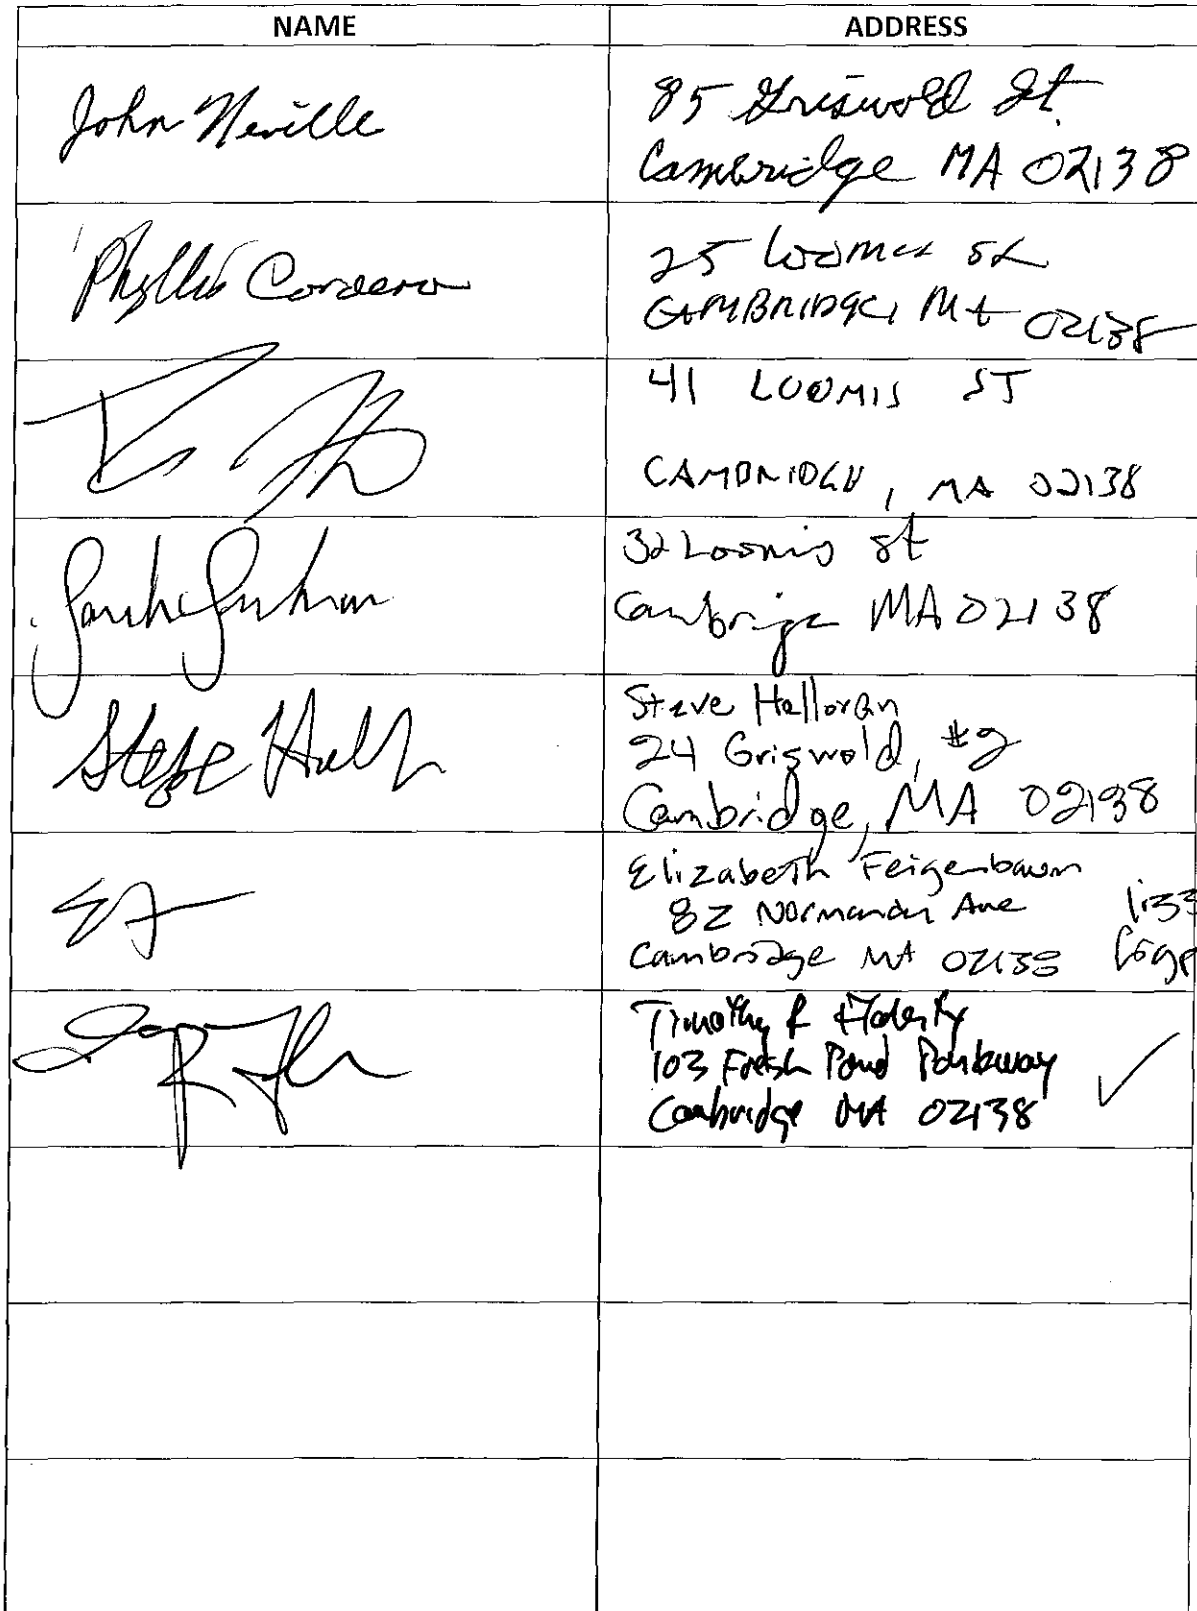 NAME
ADDRESS
John Neville
85 Griswold St.
Cambridge MA 02138
Phyllis Cordero
25 Loomis St
CAMBRIDGE, MA 02138
41 LOOMIS ST
CAMBRIDGE, MA 02138
32 Loomis St
Cambrige MA 02138
Steve Hall
Steve Halloran
24 Griswold, #2
Cambridge, MA 02138
Elizabeth Feigenbaum
82 Normandy Ave
Cambridge MA 02138
Timothy R Flaherty
103 Fresh Pond Parkway
Cambridge MA 02138